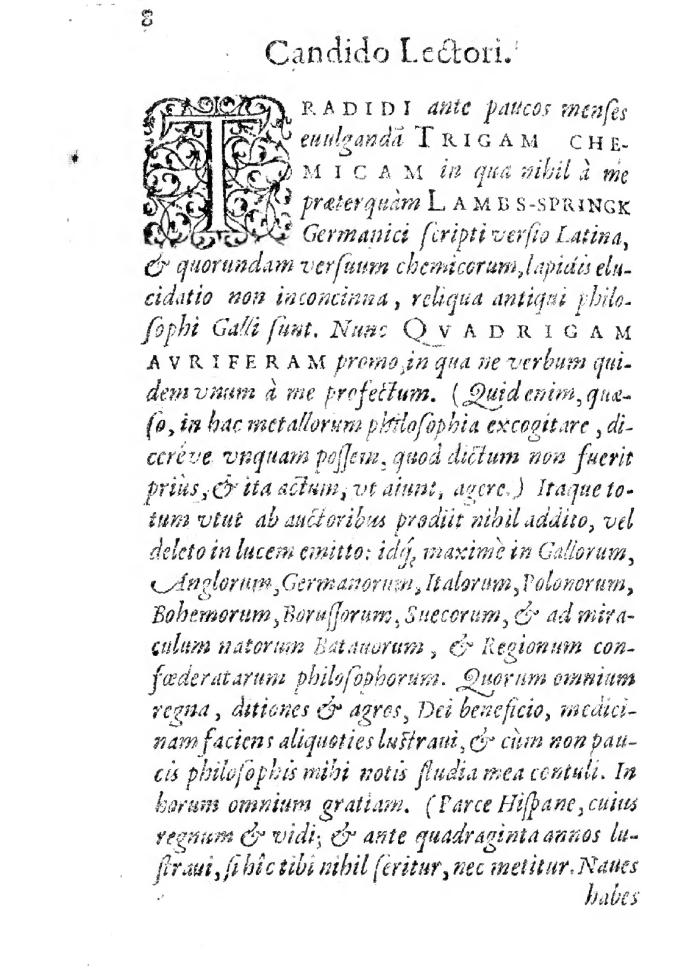 8
Candido Lectori.
TRADIDI ante paucos menſes
euulgandã TRIGAM CHE-
MICAM in qua nihil à me
præterquàm LAMBS-SPRINGK
Germanici ſcripti verſio Latina,
& quorundam verſuum chemicorum, lapidis elu-
cidatio non inconcinna, reliqua antiqui philo-
ſophi Galli ſunt. Nunc QVADRIGAM
AVRIFERAM promo, in qua ne verbum qui-
dem vnum à me profectum. (Quid enim, quæ-
ſo, in hac metallorum philoſophia excogitare, di-
ceréve vnquam poſſem, quod dictum non fuerit
priùs, & ita actum, vt aiunt, agere.) Itaque to-
tum vtut ab auctoribus prodiit nihil addito, vel
deleto in lucem emitto: idq́, maximè in Gallorum,
Anglorum, Germanorum, Italorum, Polonorum,
Bohemorum, Boruſſorum, Suecorum, & ad mira-
culum natorum Batauorum, & Regionum con-
fœderatarum philoſophorum. Quorum omnium
regna, ditiones & agros, Dei beneficio, medici-
nam faciens aliquoties luſtraui, & cùm non pau-
cis philoſophis mihi notis ſtudia mea contuli. In
horum omnium gratiam. (Parce Hiſpane, cuius
regnum & vidi; & ante quadraginta annos lu-
ſtraui, ſi hîc tibi nihil ſeritur, nec metitur. Naues
habes